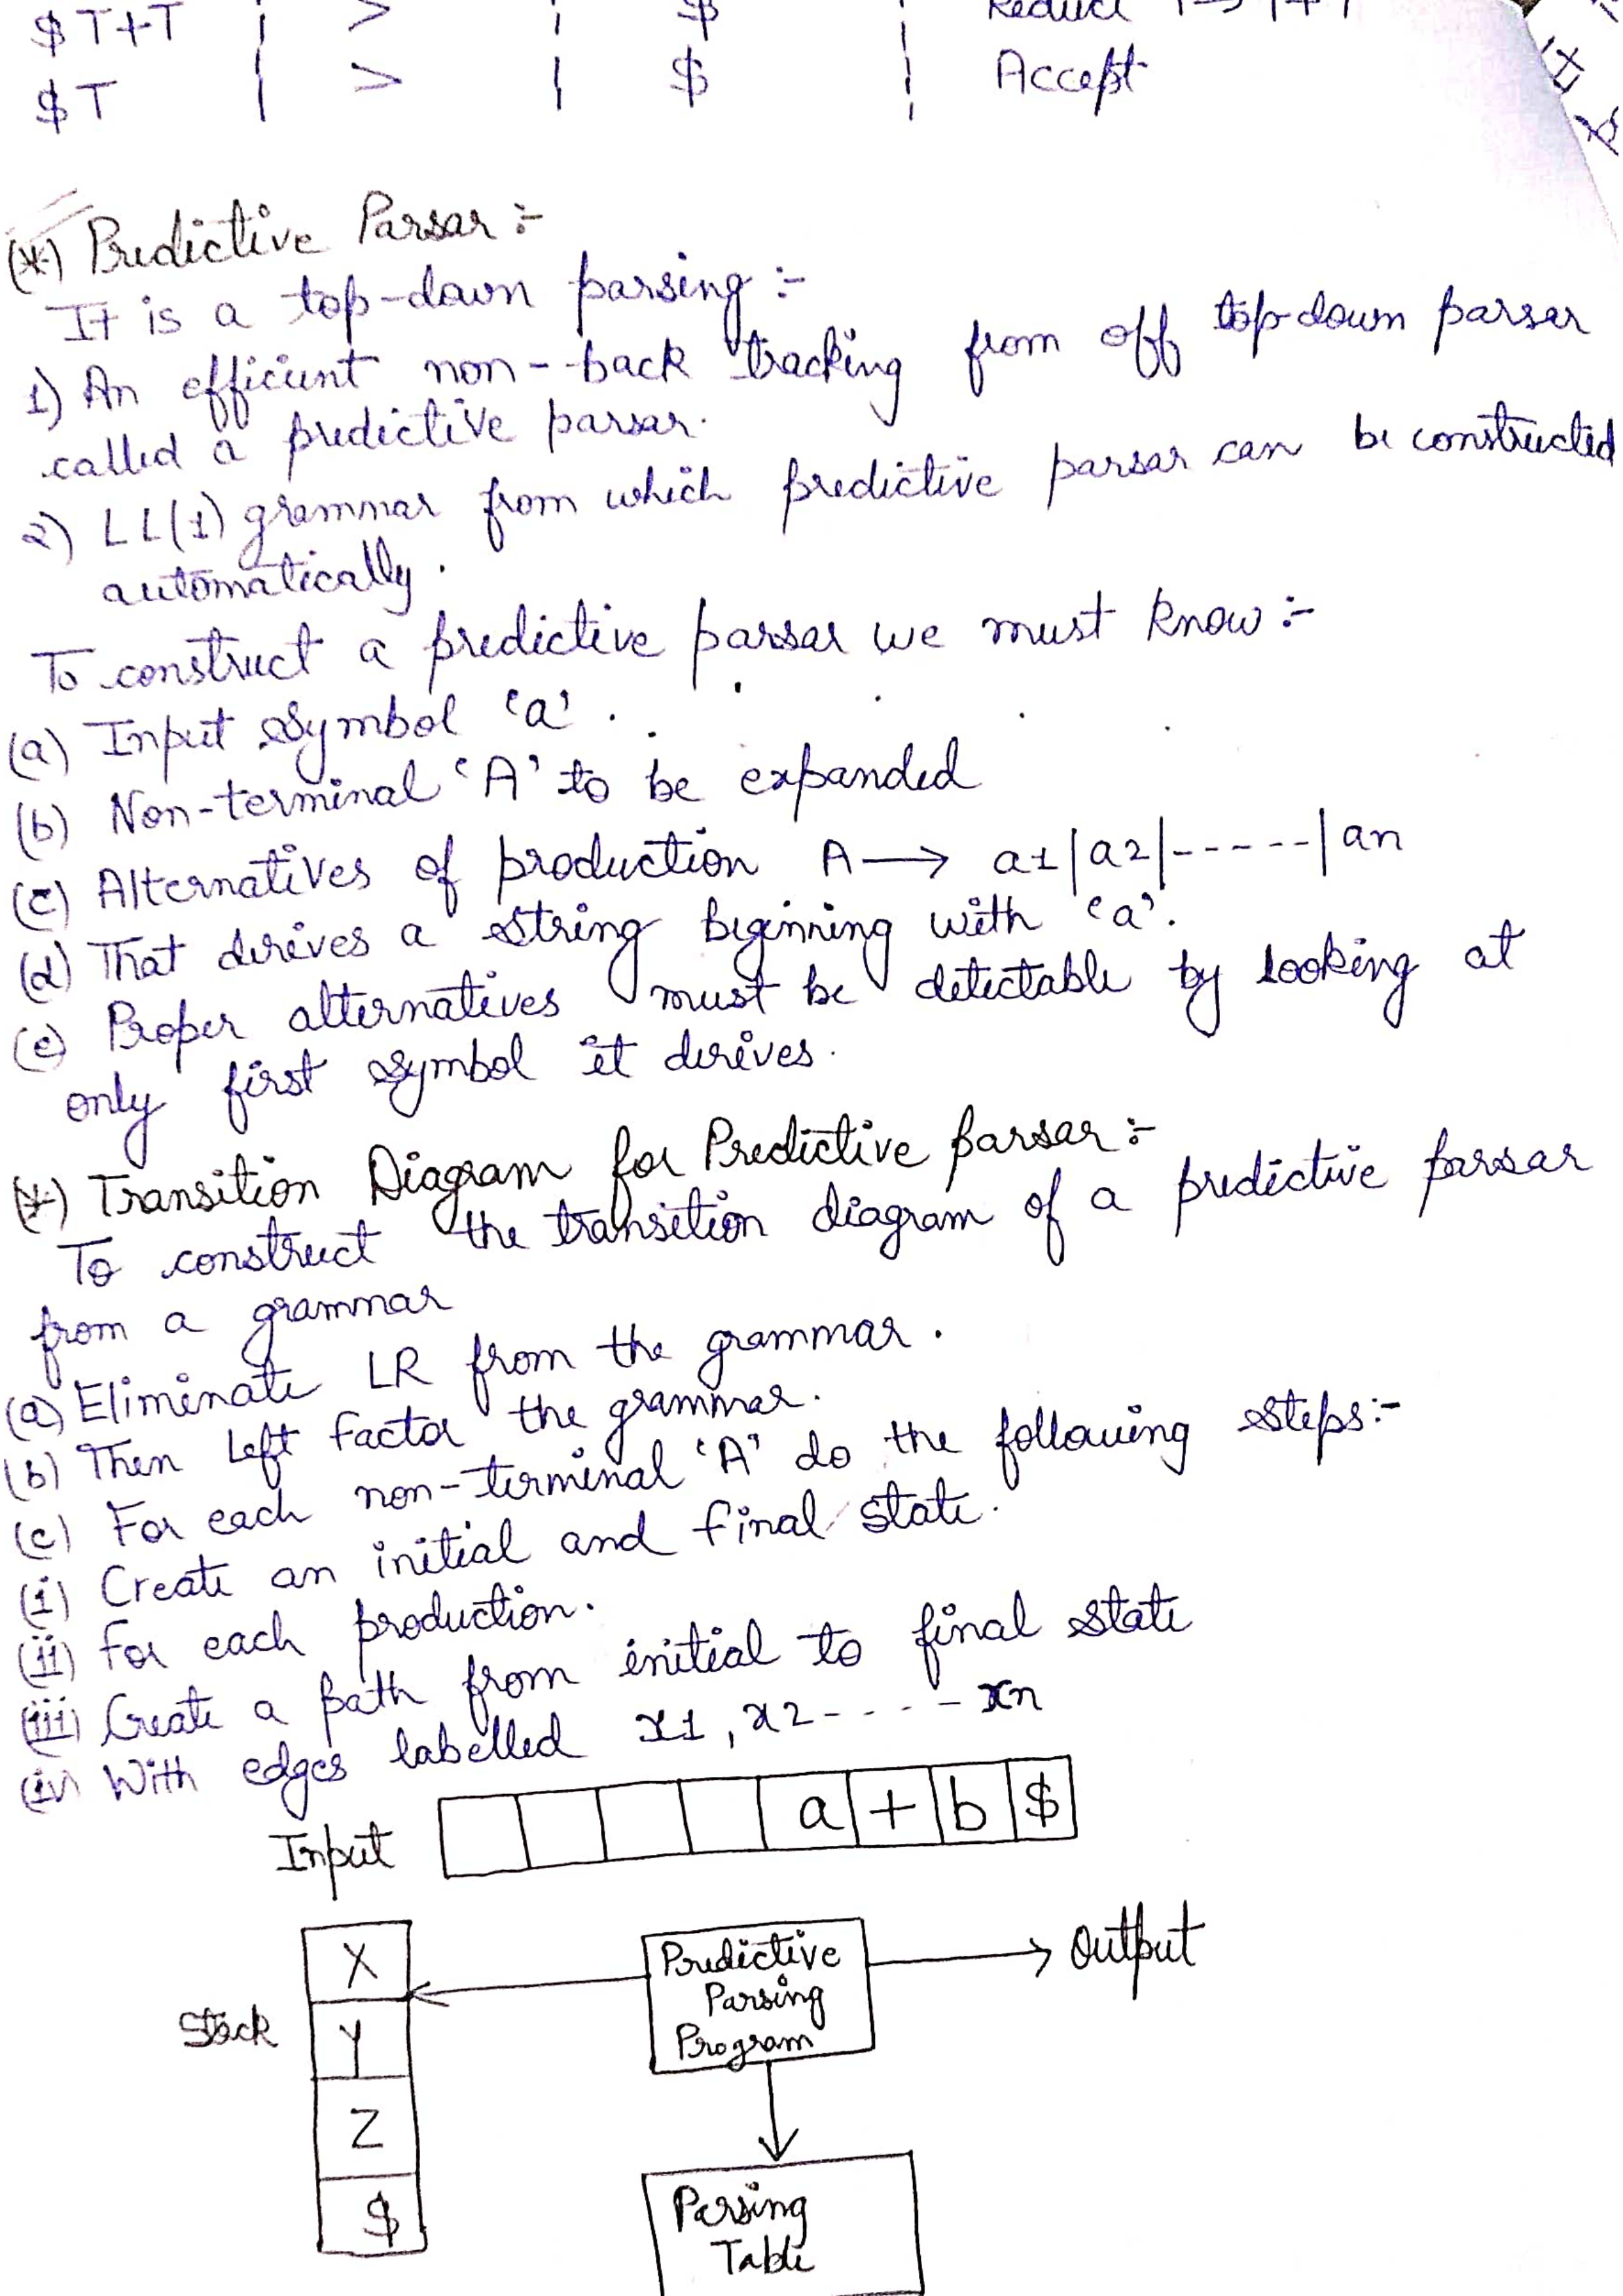 $T+T | > | $ | Reduce T→T+T
$T | > | $ | Accept
(*) Predictive Parsar :-
It is a top-down parsing :-
1) An efficient non--back tracking from off top-down parser
called a predictive parsar.
2) LL(1) grammar from which predictive parsar can be constructed
automatically.
To construct a predictive parsar we must know :-
(a) Input symbol 'a'.
(b) Non-terminal 'A' to be expanded
(c) Alternatives of production A → a1|a2|-----|an
(d) That derives a string beginning with 'a'.
(e) Proper alternatives must be detectable by looking at
only first symbol it derives.
(*) Transition Diagram for Predictive parsar :-
To construct the transition diagram of a predictive parsar
from a grammar
(a) Eliminate LR from the grammar.
(b) Then Left factor the grammar.
(c) For each non-terminal 'A' do the following steps:-
(i) Create an initial and final state.
(ii) for each production.
(iii) Create a path from initial to final state
(iv) With edges labelled x1, x2----xn
Input a + b $
X
Predictive
Parsing
Program
Output
Stack
Y
Z
$
Parsing
Table